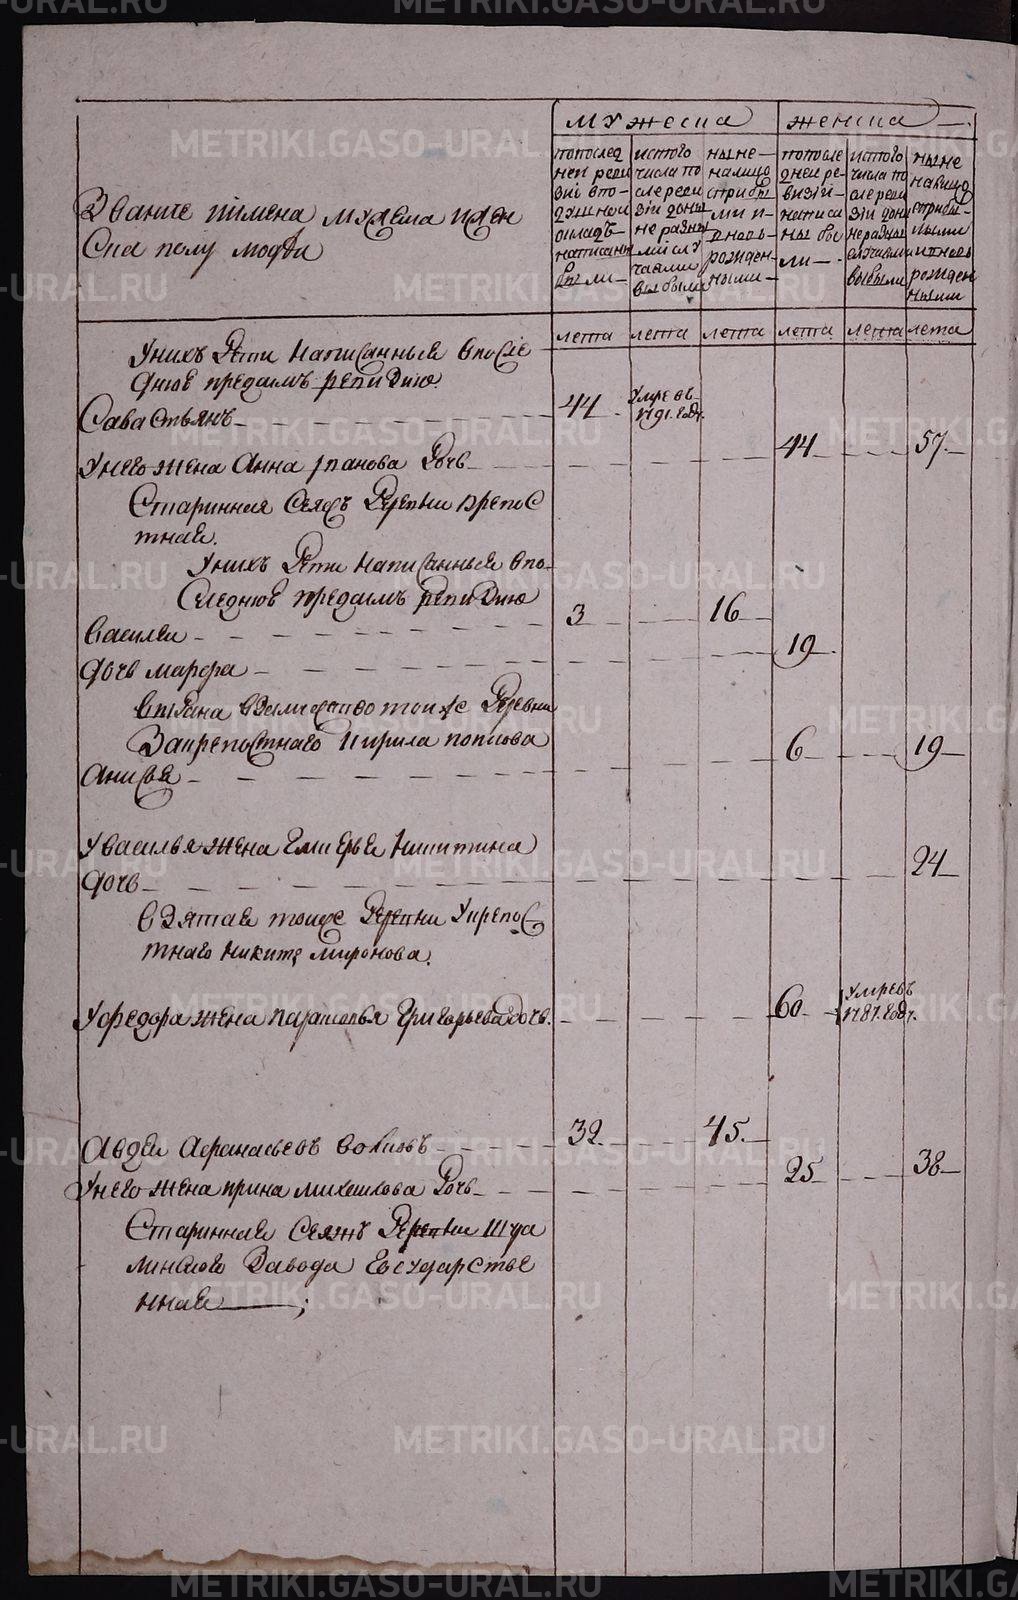 мужеска
женска
Звание и имена мужеска и жен
ска полу людей
попослед
ней реви
зии впо-
душной
окладъ
написаны
были-
истого
числа по
сле реви
зии до ны
не разны
ми слу
чаями
выбыли
ныне-
налицо
сприбы
лыми и
вновь-
рожден-
ными-
попосле
дней ре-
визии-
написа
ны бы
ли-
истого
числа по
сле реви
зии до ны
не разны
случаями
выбыли
ныне
налицо
сприбы-
лыми
и вновь
рожден
ными
лета лета лета лета лета лета
Уних Дети написанныя впосле
днюю предсимъ ревизию
Савастьянъ 44 Умре въ
1791. годУ.
Унего жена Анна Дочь 44 57.
Старинная Деревни крепос
тная.
Унихъ Дети написанныя впо-
следнюю предсимъ ревизию
Василеи 3 16
дочь марфа 19
Деревни
Кирила попкова
Анисья 6 19
Увасилья жена Никитина
дочь 24
Взятая тоиже Деревни Укрепос
тнаго Никиты миронова.
Уфедора жена парасковья Григорьева дочь. 60 Умре въ
1787. годУ.
Авдеи Афанасьевъ 32. 45.
Унего жена ирина Дочь 25 38
Старинная Деревни
Завода Государстве
нная ;
METRIKI.GASO-URAL.RU